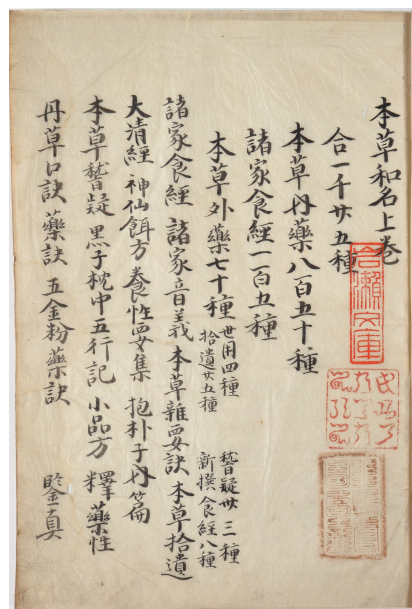 本草和名上巻
合一千廿五種
本草内藥八百五十種
諸家食經一百五種
本草外藥七十種 世用四種 拾遺廿五種 稽疑卅三種 新撰食經八種
諸家食經 諸家音義 本草雜要訣 本草拾遺
大清經 神仙餌方 養性要集 抱朴子内篇
本草稽疑 黒子枕中五行記 小品方 釋藥性
丹草口訣 藥訣 五金粉藥訣 鑒真